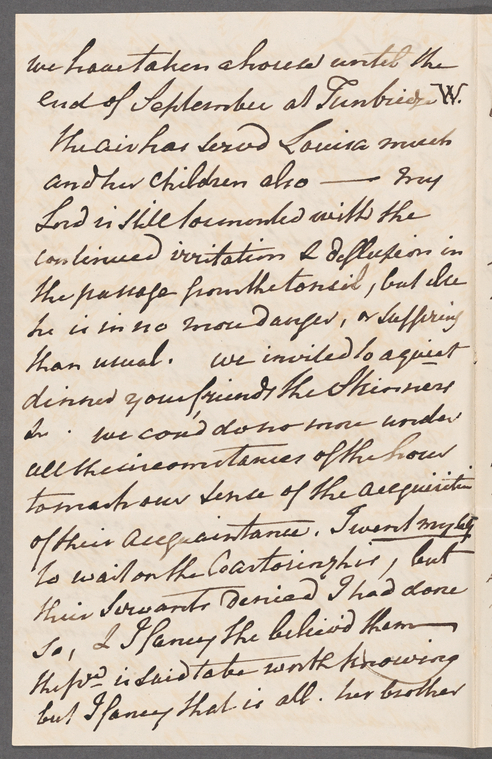 we have taken a house until the
end of September at Tunbridge W.
the air has serv'd Louisa much
and her children also — my
Lord is still tormented with the
continued irritation & defluxion in
the passage from the tonsil, but else
he is in no more danger, or suffering
than usual. we invited to a quiet
dinner your friends the Skinners
&c. we cou'd do no more under
all the circumstances of the hour
to mark our sense of the acquisition
of their acquaintance. I went myself
to wait on the
their Servants denied I had done
so, & I fancy she believ'd them
the is said to be worth knowing
but I fancy that is all. her brother